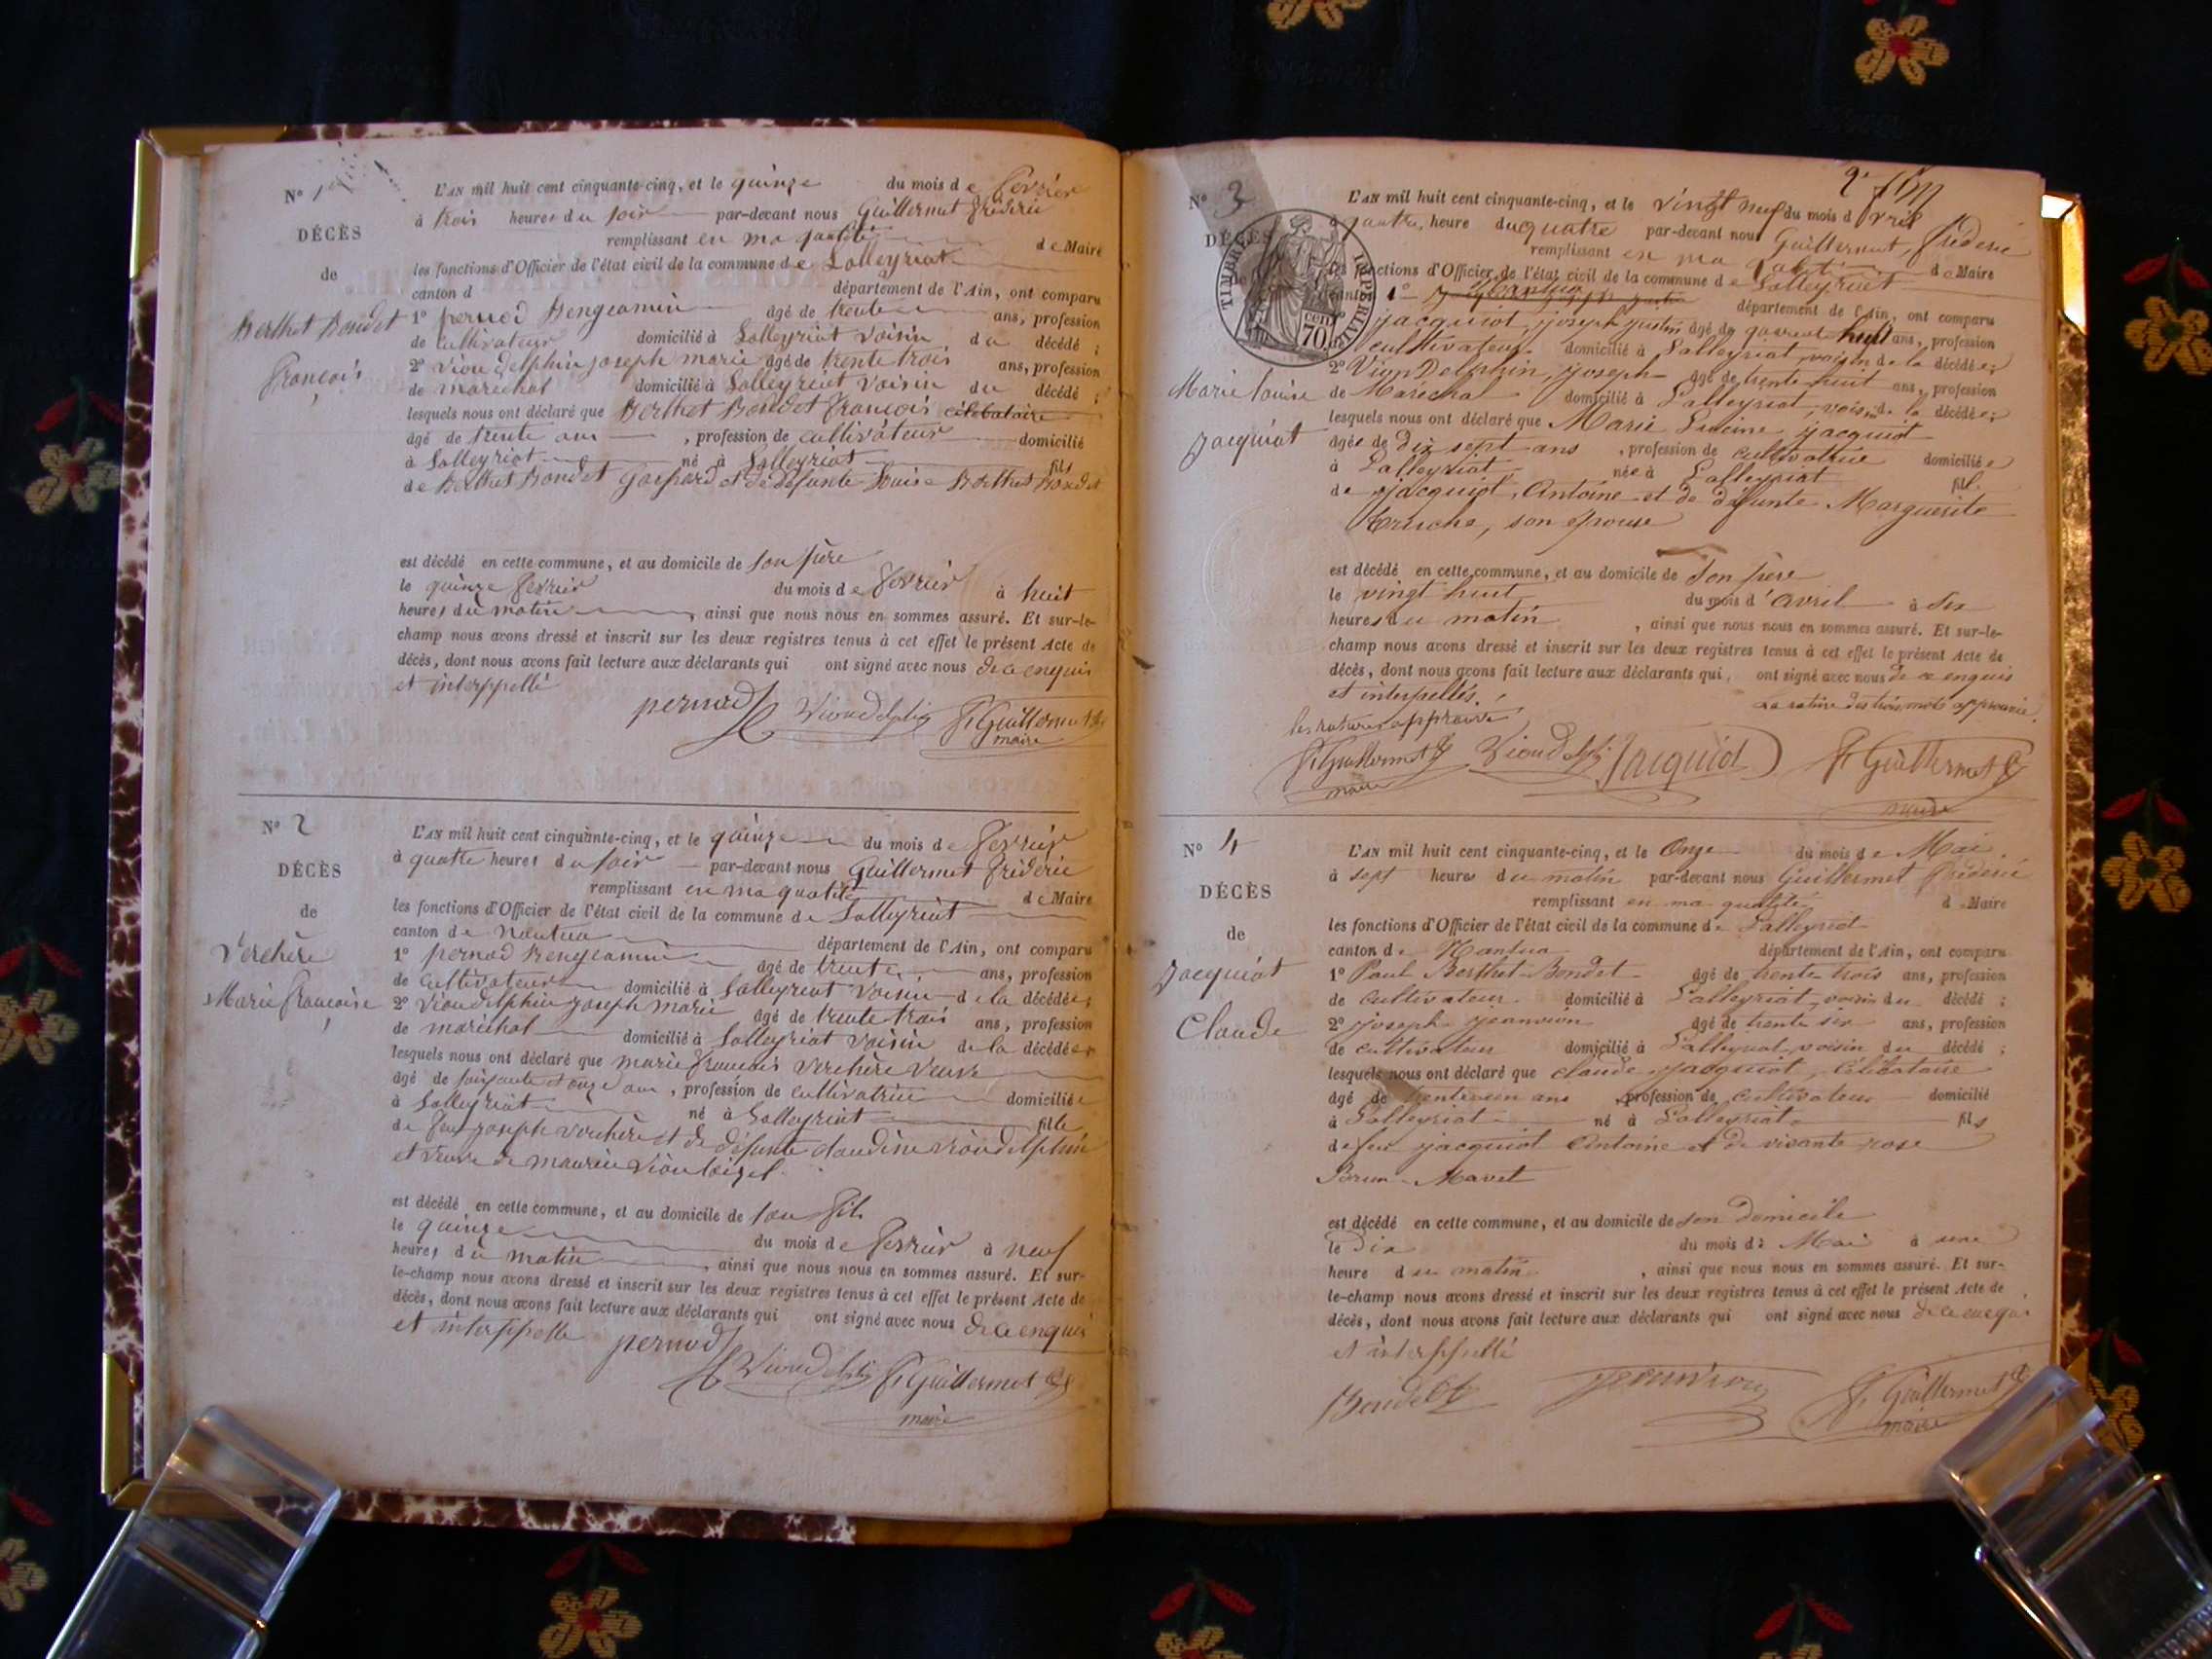 N° 1
DÉCÈS
de
Berthet Bondet
François
L'AN mil huit cent cinquante-cinq, et le quinze du mois de fevrier
à trois heures du soir par-devant nous Guillermet frederic
remplissant en ma qualité de Maire
les fonctions d'Officier de l'état civil de la commune de Lalleyriat
canton d département de l'Ain, ont comparu
1° pernod Bengeamin agé de trente ans, profession
de cultivateur domicilié à Lalleyriat voisin du décédé ;
2° Vion delphin joseph marie agé de trente trois ans, profession
de marechal domicilié à Lalleyriat voisin du décédé ;
lesquels nous ont déclaré que Berthet Bondet françois célebataire
âgé de trente ans , profession de cultivateur domicilié
à Lalleyriat né à Lalleyriat fils
de Berthet Bondet Gaspard et de defunte Louise Berthet Bondet
est décédé en cette commune, et au domicile de son père
le quinze fevrier du mois de fevrier à huit
heures du matin , ainsi que nous nous en sommes assuré. Et sur-le-
champ nous avons dressé et inscrit sur les deux registres tenus à cet effet le présent Acte de
décès, dont nous avons fait lecture aux déclarants qui ont signé avec nous de ce enquis
et interppellé
pernod Vion delphin f. Guillermet
maire
N° 2
DÉCÈS
de
Verchère
Marie françoise
L'AN mil huit cent cinquante-cinq, et le quinze du mois de fevrier
à quatre heures du soir par-devant nous Guillermet frederic
remplissant en ma qualité de Maire
les fonctions d'Officier de l'état civil de la commune de Lalleyriat
canton de nantua département de l'Ain, ont comparu
1° pernod Bengeamin âgé de trente ans, profession
de cultivateur domicilié à Lalleyriat voisin de la décédée ;
2° Vion delphin joseph marie âgé de trente trois ans, profession
de maréchal domicilié à Lalleyriat voisin de la décédée
lesquels nous ont déclaré que marie françois verchère veuve
âgé de soixante et onze ans , profession de cultivatrice domiciliée
à Lalleyriat né à Lalleyriat fille
de feu joseph verchère et de défunte claudine vion delphin
et veuve de maurice vion
est décédé en cette commune, et au domicile de son fils
le quinze du mois de fevrier à neuf
heures du matin , ainsi que nous nous en sommes assuré. Et sur-
le-champ nous avons dressé et inscrit sur les deux registres tenus à cet effet le présent Acte de
décès, dont nous avons fait lecture aux déclarants qui ont signé avec nous de ce enquis
et interppelle
pernod Vion delphin f. Guillermet
maire
N° 3
DÉCÈS
TIMBRE IMPERIAL
70 cent
Marie louise
Jacquiot
L'AN mil huit cent cinquante-cinq, et le vingt neuf du mois d'avril
heure du quatre par-devant nous Guillermet, fréderic
remplissant en ma qualité de Maire
les fonctions d'Officier de l'état civil de la commune de Lalleyriat
canton 1° Nantua département de l'Ain, ont comparu
jacquiot, joseph justin âgé de quarant huit ans, profession
cultivateur domicilié à Lalleyriat, voisin de la décédée ;
2° Vion Delphin, joseph âgé de trente huit ans, profession
de Maréchal domicilié à Lalleyriat, voisin de la décédée ;
lesquels nous ont déclaré que Marie Lucine jacquiot
âgée de dix sept ans , profession de cultivatrice domiciliée
à Lalleyriat née à Lalleyriat fil
de jacquiot, Antoine et de défunte Marguerite
, son épouse
est décédé en cette commune, et au domicile de son frère
le vingt huit du mois d'avril à six
heures du matin , ainsi que nous nous en sommes assuré. Et sur-le-
champ nous avons dressé et inscrit sur les deux registres tenus à cet effet le présent Acte de
décès, dont nous avons fait lecture aux déclarants qui, ont signé avec nous de ce enquis
et interpellés.
La rature des trois mots approuvée
les ratures approuvé
f. Guillermet Vion delphin Jacquiot f. Guillermet
maire maire
N° 4
DÉCÈS
de
Jacquiot
Claude
L'AN mil huit cent cinquante-cinq, et le Onze du mois de Mai
à sept heures du matin par-devant nous Guillermet Fréderic
remplissant en ma qualité d Maire
les fonctions d'Officier de l'état civil de la commune de Lalleyriat
canton de Nantua département de l'Ain, ont comparu
1° Paul Berthet-Bondet âgé de trente trois ans, profession
de cultivateur domicilié à Lalleyriat, voisin du décédé ;
2° joseph jeanvion âgé de trente six ans, profession
de cultivateur domicilié à Lalleyriat, voisin du décédé ;
lesquels nous ont déclaré que claude jacquiot, célibataire
âgé de trente un ans , profession de cultivateur domicilié
à Lalleyriat né à Lalleyriat fils
de feu jacquiot Antoine et de vivante rose
Brun-Mavet
est décédé en cette commune, et au domicile de son domicile
le Dix du mois de Mai à une
heure du matin , ainsi que nous nous en sommes assuré. Et sur-
le-champ nous avons dressé et inscrit sur les deux registres tenus à cet effet le présent Acte de
décès, dont nous avons fait lecture aux déclarants qui ont signé avec nous de ce enquis
et interppellé
Bondet jeanvion f. Guillermet
maire